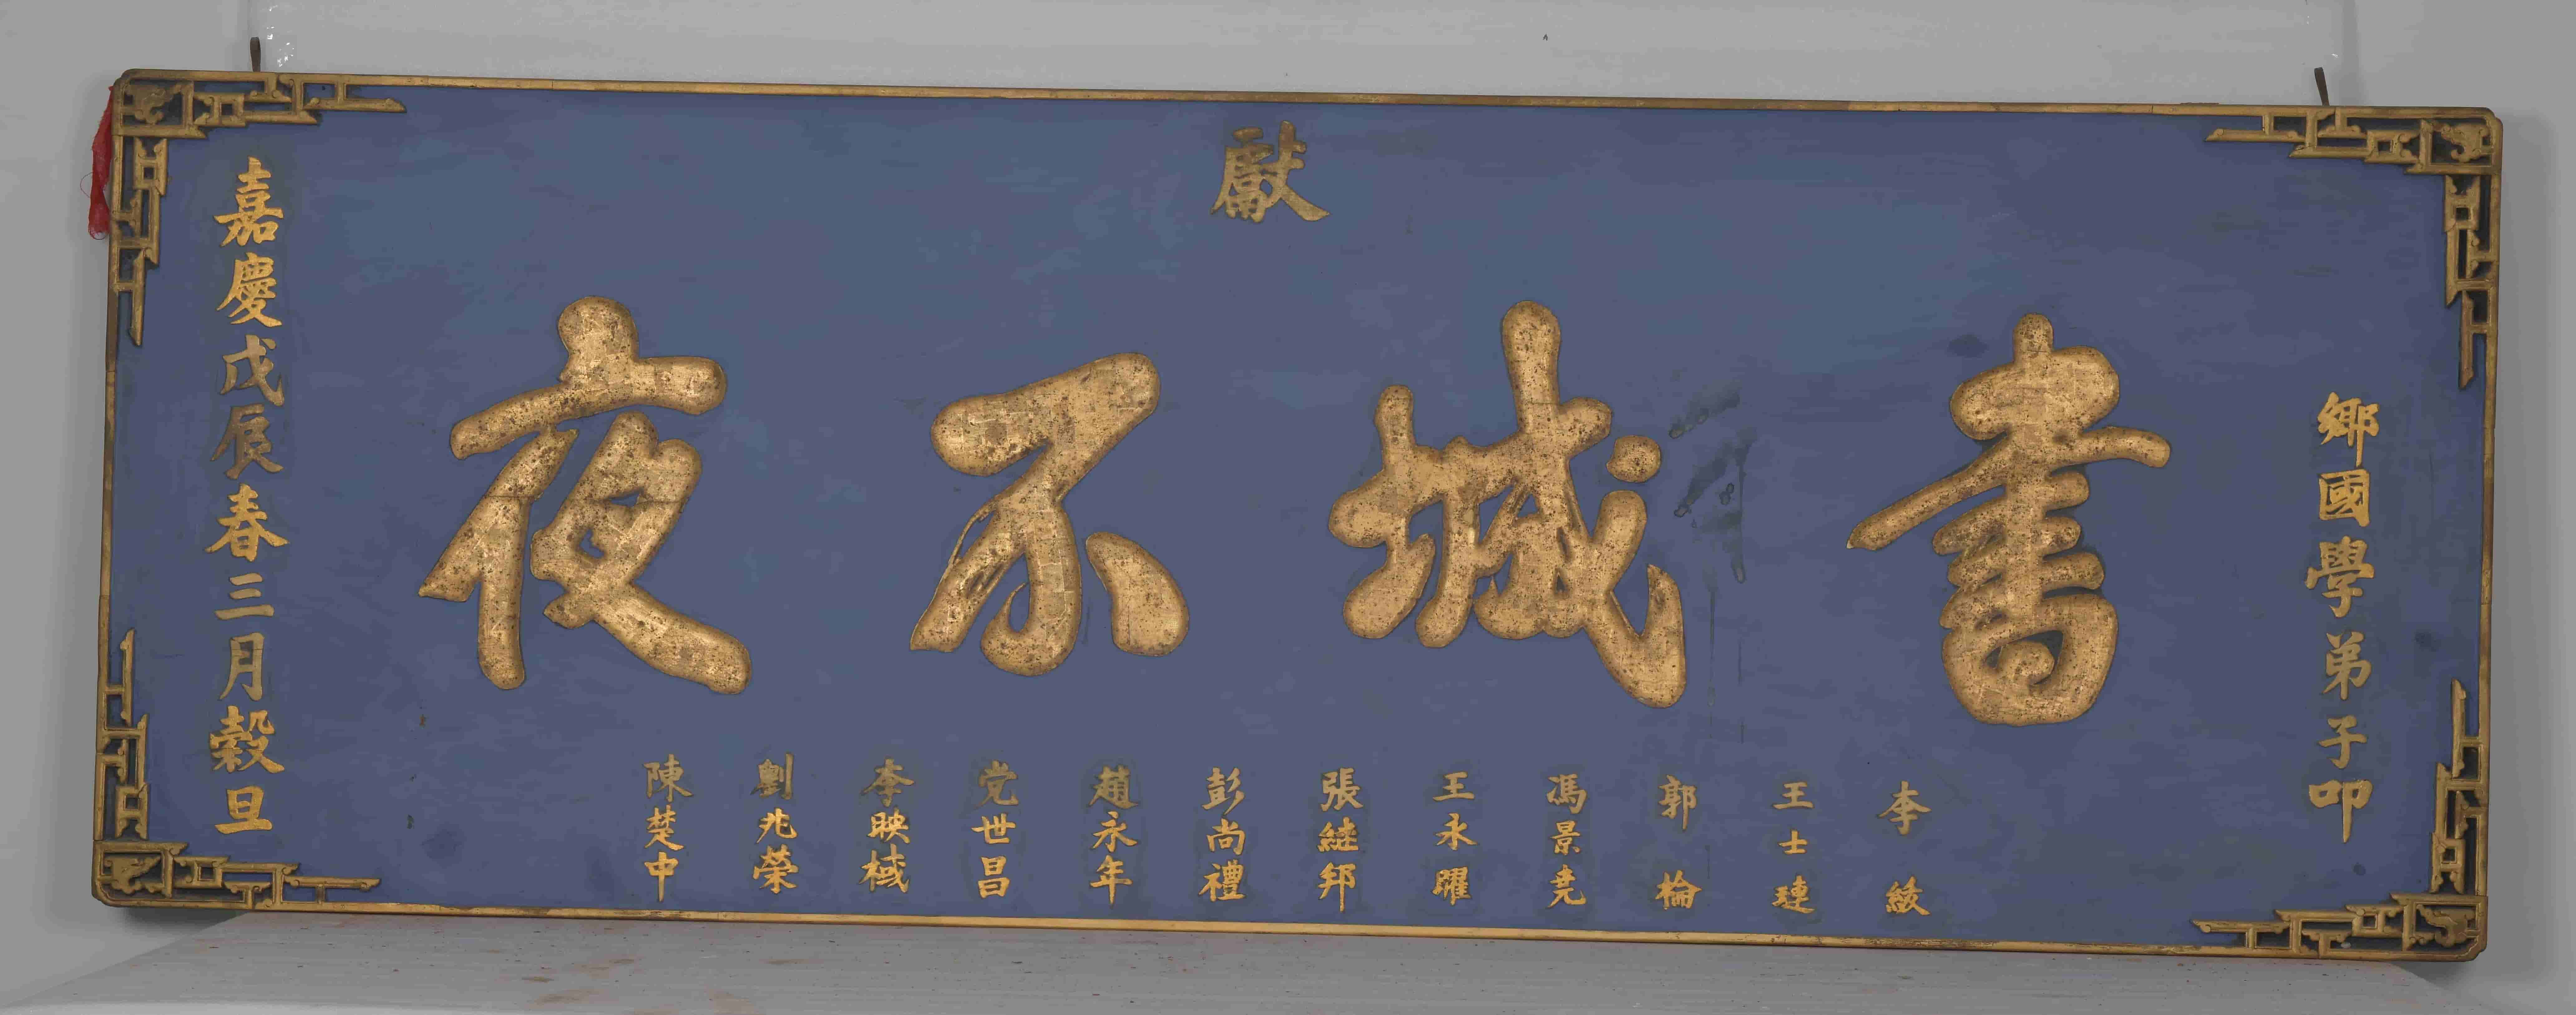 鄉國學弟子叩
獻
書城不夜
李紱
王士璉
郭棆
馮景堯
王永曜
張繼邦
彭尚禮
趙永年
党世昌
李映棫
劉兆榮
陳楚中
嘉慶戊辰春三月穀旦